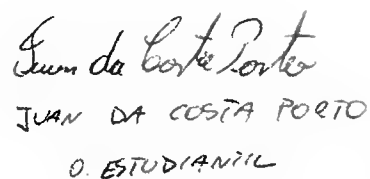 Juan da Costa Porto
JUAN DA COSTA PORTO
O. ESTUDIANTIL